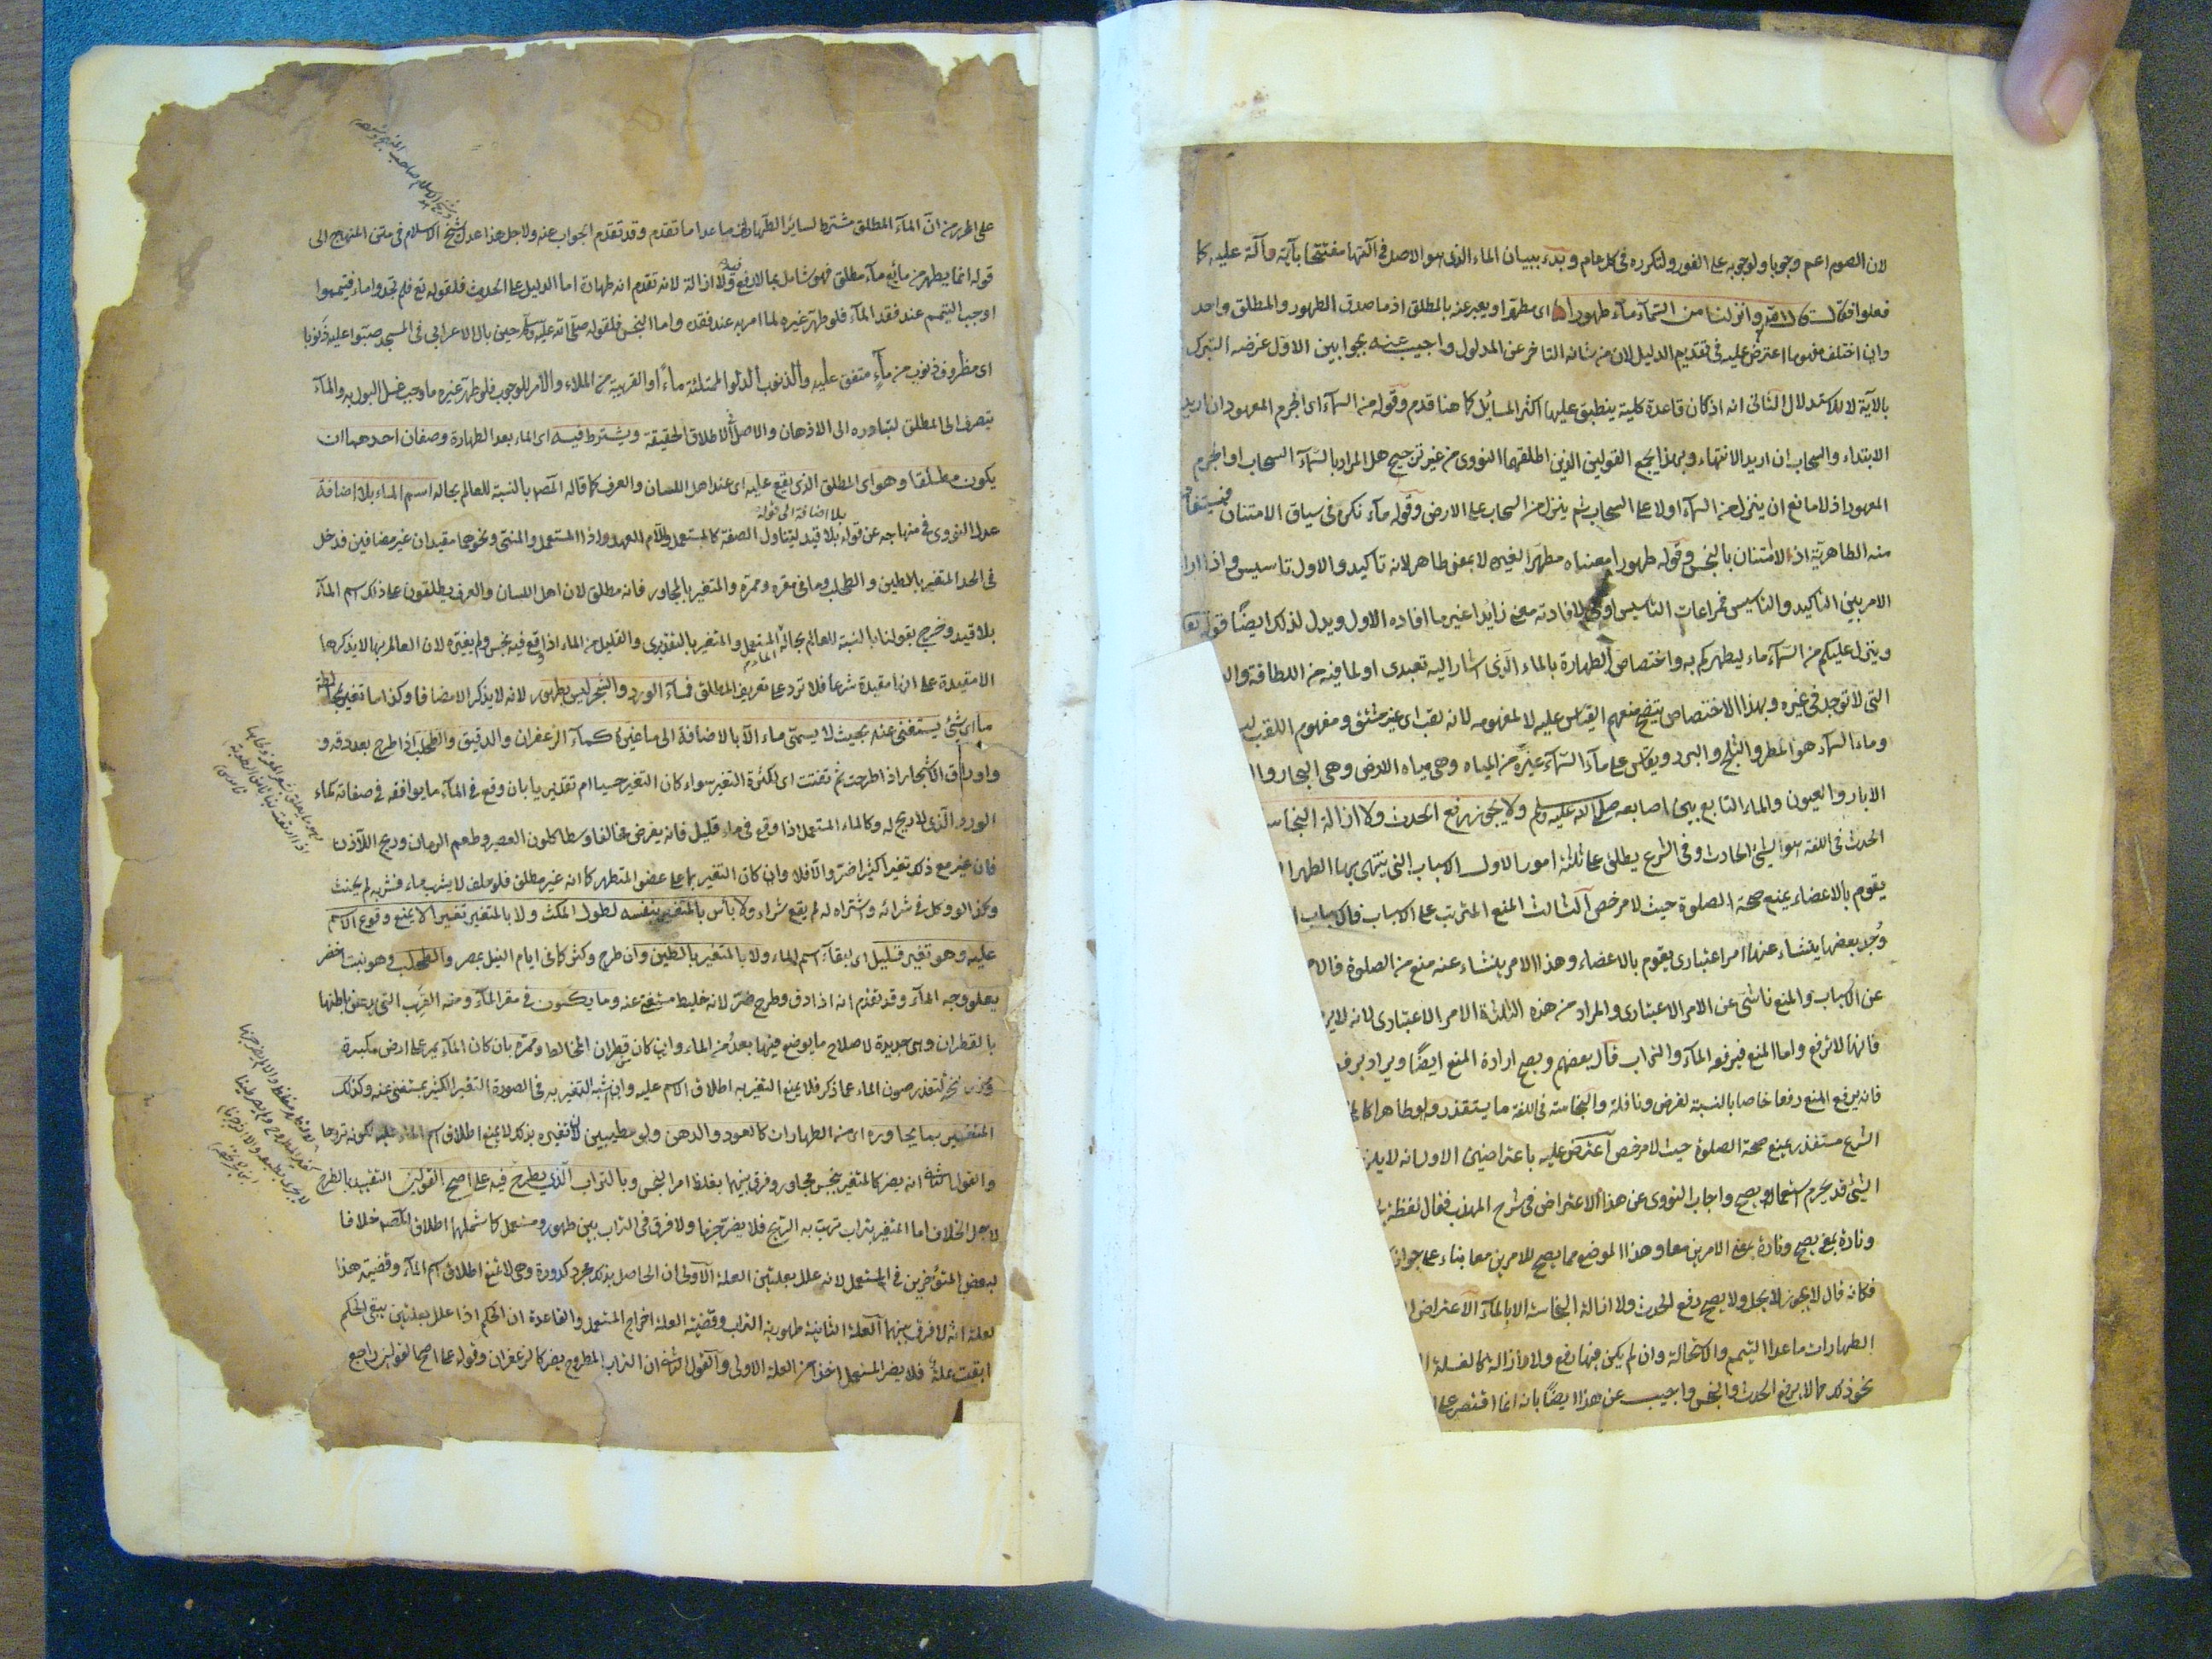 لان الصوم اعم وجوبا ولوجوبه على الفور ولتكرره فى كل عام وبدء ببيان الماء الذى هو الاصل فى آلتها مفتتحا بآية دآلة عليه كما
فعلوا فقال قال الله تعالى وانزلنا من السمآء مآء طهورا اى مطهرا ويعبر عنه بالمطلق اذ ما صدق الطهور والمطلق واحد
وان اختلف مفهوما اعترض عليه فى تقديم الدليل لان من شانه التاخر عن المدلول واجيب عنه بجوابين الاول غرضه التبرك
بالآية لا الاستدلال الثانى انه اذ كان قاعدة كلية ينطبق عليها اكثر المسائل كما هنا قدم وقوله من السمآء اى الجرم المعهود ان اريد
الابتداء والسحاب ان اريد الانتهاء وبهذا يجمع القولين الذين اطلقهما النووى من غير ترجيح هل المراد بالسمآء السحاب او الجرم
المعهود اذ لا مانع ان ينزل من السمآء اولا على السحاب ثم ينزل من السحاب على الارض وقوله مآء نكره فى سياق الامتنان فيستفاد
منه الطاهرية اذ لا امتنان بالنجس وقوله طهورا معناه مطهرا لغيره لا بمعنى طاهر لانه تاكيد والاول تاسيس واذا دار
الامر بين التاكيد والتاسيس فمراعات التاسيس اولى لافادته معنى زايدا غير ما افاده الاول ويدل لذلك ايضًا قوله تعا
وينزل عليكم من السمآء ماء ليطهركم به واختصاص الطهارة بالماء الذى اشار اليه تعبدى او لما فيه من اللطافة
التى لا توجد فى غيره وبهذا الاختصاص يتضح منعهم القياس عليه لا لمفهومه لانه لقب اى غير مشتق ومفهوم اللقب
وماء السمآء هو المطر والثلج والبرد ويقاس على مآء السمآء غيره من المياه وهى مياه الارض وهى البحار
الابار والعيون والماء النابع بين اصابعه صلى الله عليه وسلم ولا يجوز رفع الحدث ولا ازالة النجاسة
الحدث فى اللغة هو الشيئ الحادث وفى الشرع يطلق على ثلثة امور الاول الاسباب التى ينتهى بها الطهر
يقوم بالاعضاء يمنع صحة الصلوة حيث لا مرخص الثالث المنع المترتب على الاسباب فالاسباب
وُجد بعضها ينشاء عنها امر اعتبارى يقوم بالاعضاء وهذا الامر ينشاء عنه منع من الصلوة
عن الاسباب والمنع ناشئ عن الامر الاعتبارى والمراد من هذه الثلثة الامر الاعتبارى لانه
فانها لا ترفع واما المنع فيرفعه المآء والتراب قال بعضهم ويصح ارادة المنع ايضًا ويراد
فانه يرفع المنع رفعا خاصا بالنسبة لفرض ونافلة والنجاسة فى اللغة ما يستقذر ولو طاهرا
الشرع مستقذر يمنع صحة الصلوة حيث لا مرخص اعترض عليه باعتراضين الاول انه لا يلزم
الشيئ قد يحرم استعماله ويصح واجاب النووى عن هذا الاعتراض فى شرح المهذب فقال لفظة
وتارة بمعنى يصح وتارة بمعنى الامرين معا وهذا الموضع مما يصح للامرين معا بناء على جواز
فكانه قال لا يجوز لا يحل ولا يصح رفع الحدث ولا ازالة النجاسة الا بالمآء الاعتراض
الطهارات ما عدا التيمم والاستحالة وان لم يكن فيها رفع ولا ازالة كالغسلة
نحو ذلك مما لا يرفع الحدث والنجس واجيب عن هذا ايضًا بانه انما اقتصر على
من ان المآء المطلق مشترط لسائر الطهارات ما عدا ما تقدم وقد تقدم الجواب عنه ولاجل هذا عدل شيخ الاسلام فى متن المنهج الى
قوله انما يطهر من مايع مآء مطلق فهو شامل لما لا رفع فيه ولا ازالة لانه تقدم انه طهارة اما الدليل على الحدث فلقوله تع فلم تجدوا ماء فتيمموا
اوجب التيمم عند فقد المآء فلو طهر غيره لما امر به عند فقده واما النجس فلقوله صلى الله عليه وسلم حين بال الاعرابى فى المسجد صبّوا عليه ذَنوبا
اى مظروف ذنوب من مآءٍ متفق عليه والذنوب الدلو الممتلئة ماءً او القريبة من الملاء والامر للوجوب فلو طهر غيره ما وجب غسل البول به والمآء
ينصرف الى المطلق لتبادره الى الاذهان والاصل فى الاطلاق الحقيقة ويشترط فيه اى الماء بعد الطهارة وصفان احدهما ان
يكون مطلقا وهو اى المطلق الذى يقع عليه اى عند اهل اللسان والعرف كما قاله المصـ بالنسبة للعالم بحاله اسم الماء بلا اضافة
بلا اضافة الى قوله
عدل النووى فى منهاجه عن قوله بلا قيد ليتناول الصفة كالمستعمل ولام العهد واذا المستعمل والمنى ونحوهما مقيدان غير مضافين فدخل
فى الحد المتغير بالطين والطحلب وما فى مقره وممره والمتغير بالمجاور فانه مطلق لان اهل اللسان والعرف يطلقون على ذلك اسم المآء
بلا قيد وخرج بقولنا بالنسبة للعالم بحاله المستعمل والمتغير بالتقديرى والقليل من الماء اذا وقع فيه نجس ولم يغيره لان العالم بها لا يذكرها
الا مقيدة على انها مقيدة شرعا فلا ترد على تعريف المطلق فمآء الورد والشجر ليس بطهور لانه لا يذكر الا مضافا وكذا ما تغير
ما اى شئ يستغنى عنه بحيث لا يسمّى ماء الا بالاضافة الى ما غيّره كمآء الزعفران والدقيق والطحلب اذا طرح بعد دقه و
واوراق الاشجار اذا اطرحت ثم تفتتت اى لكثرة التغير سواء كان التغير حسيا ام تقديريا بان وقع فى المآء ما يوافقه فى صفاته كماء
الورد الذى لا ريح له وكالماء المستعمل اذا وقع فى ماء قليل فانه يفرض مخالفا وسطا كلون العصير وطعم الرمان وريح اللاذن
فان غير مع ذلك تغيرا كثيرا ضر والا فلا وان كان التغير بما على عضو المتطهر كما انه غير مطلق فلو حلف لا يشرب ماء فشربه لم يحنث
وكذا لو وكل فى شرائه واشتراه له لم يقع شراء ولا بأس بالمتغير بنفسه لطول المكث ولا بالمتغير تغيرا لا يمنع وقوع الاسم
عليه وهو تغير قليل اى لبقآء اسم الماء ولا بالمتغير بالطين وان طرح وكثر كما فى ايام النيل بمصر والطحلب وهو نبت اخضر
يعلو وجه المآء وقد تقدم انه اذا دق وطرح ضرّ لانه خليط مستغنى عنه وما يكون فى مقر المآء ومنه القِرَب التى يدهن باطنها
بالقطران وهى جديدة لاصلاح ما يوضع فيها بعدُ من الماء وان كان قطران المخالط او ممره بان كان المآء يمر على ارض مكبرة
لتعذر صون الماء عما ذكر فلا يمنع التغير به اطلاق الاسم عليه وان اشبه التغير به فى الصورة التغير الكثير بمستغنى عنه وكذلك
المتغير بما يجاوره اى من الطهارات كالعود والدهن ولو مطيبين لان تغيره بذلك لا يمنع اطلاق اسم الماء عليه لكونه تروحا
والقول الثانى انه يضر كالمتغير بنجس مجاور وفرق بينهما بغلظ امر النجس وبالتراب الذى يطرح فيه على اصح القولين التقييد بالطرح
لاجل الخلاف اما المتغير بتراب تهب به الريح فلا يضر جزما ولا فرق فى التراب بين طهور ومستعمل كما شملهما اطلاق المصـ خلافا
لبعض المتؤخرين فى المستعمل لانه علل بعلتين العلة الاولى ان الحاصل بذلك مجرد كدورة وهى لا تمنع اطلاق اسم المآء وقضية هذا
لعلة انه لا فرق بينهما العلة الثانية طهورية التراب وقضية العلة اخراج المستعمل والقاعدة ان الحكم اذا علل بعلتين يبقى الحكم
ابقيت علة فلا يضر المستعمل اخذا من العلة الاولى والقول الثانى ان التراب المطروح يضر كالزعفران وقوله على اصح القولين راجع